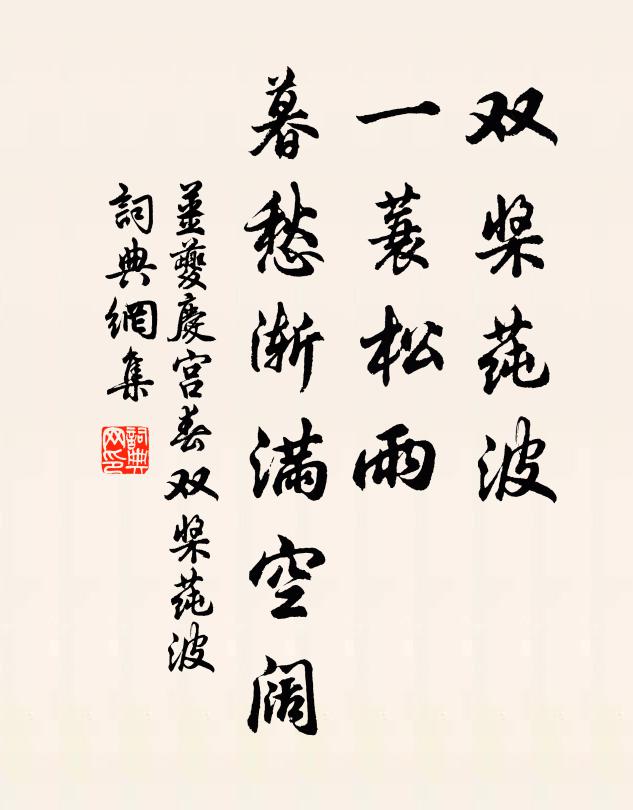 双桨莼波
一蓑松雨
暮愁渐满空阔
姜夔慶宫春双桨莼波
詞典網集
詞典网印